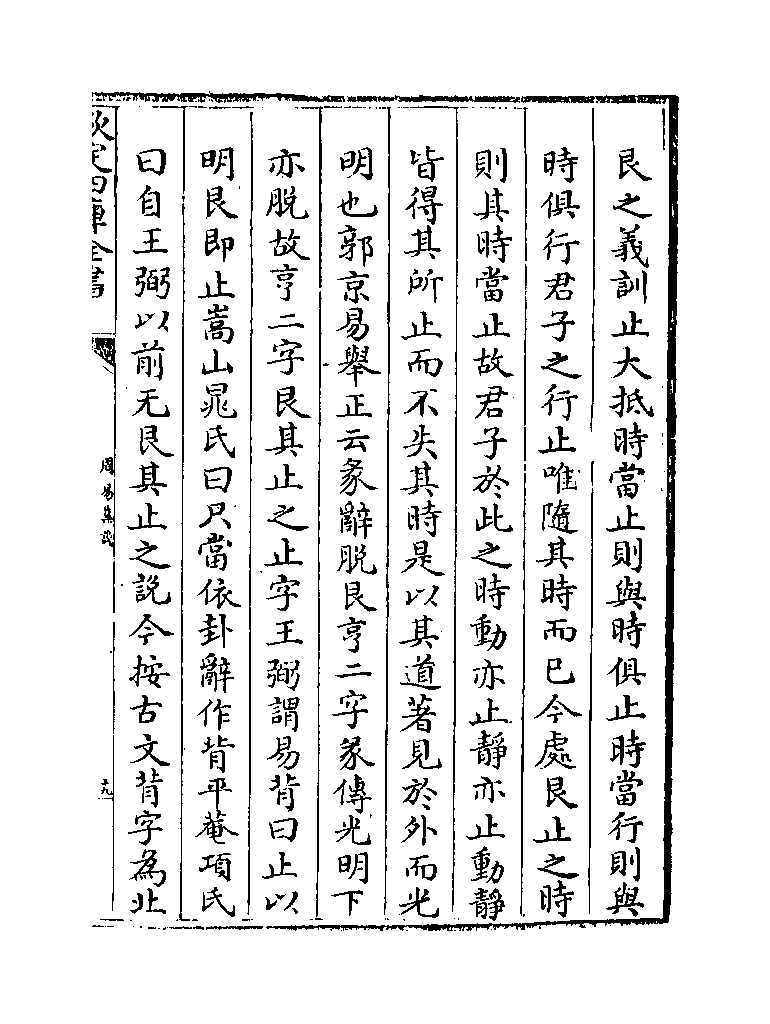 艮之義訓止大抵時當止則與時俱止時當行則與
時俱行君子之行止唯隨其時而已今處艮止之時
則其時當止故君子於此之時動亦止靜亦止動靜
皆得其所止而不失其時是以其道著見於外而光
明也郭京易舉正云彖辭脱艮亨二字彖傳光明下
亦脱故亨二字艮其止之止字王弼謂易背曰止以
明艮即止嵩山晁氏曰只當依卦辭作背平菴項氏
曰自王弼以前无艮其止之說今按古文背字為北
欽定四庫全書
周易集說
十九